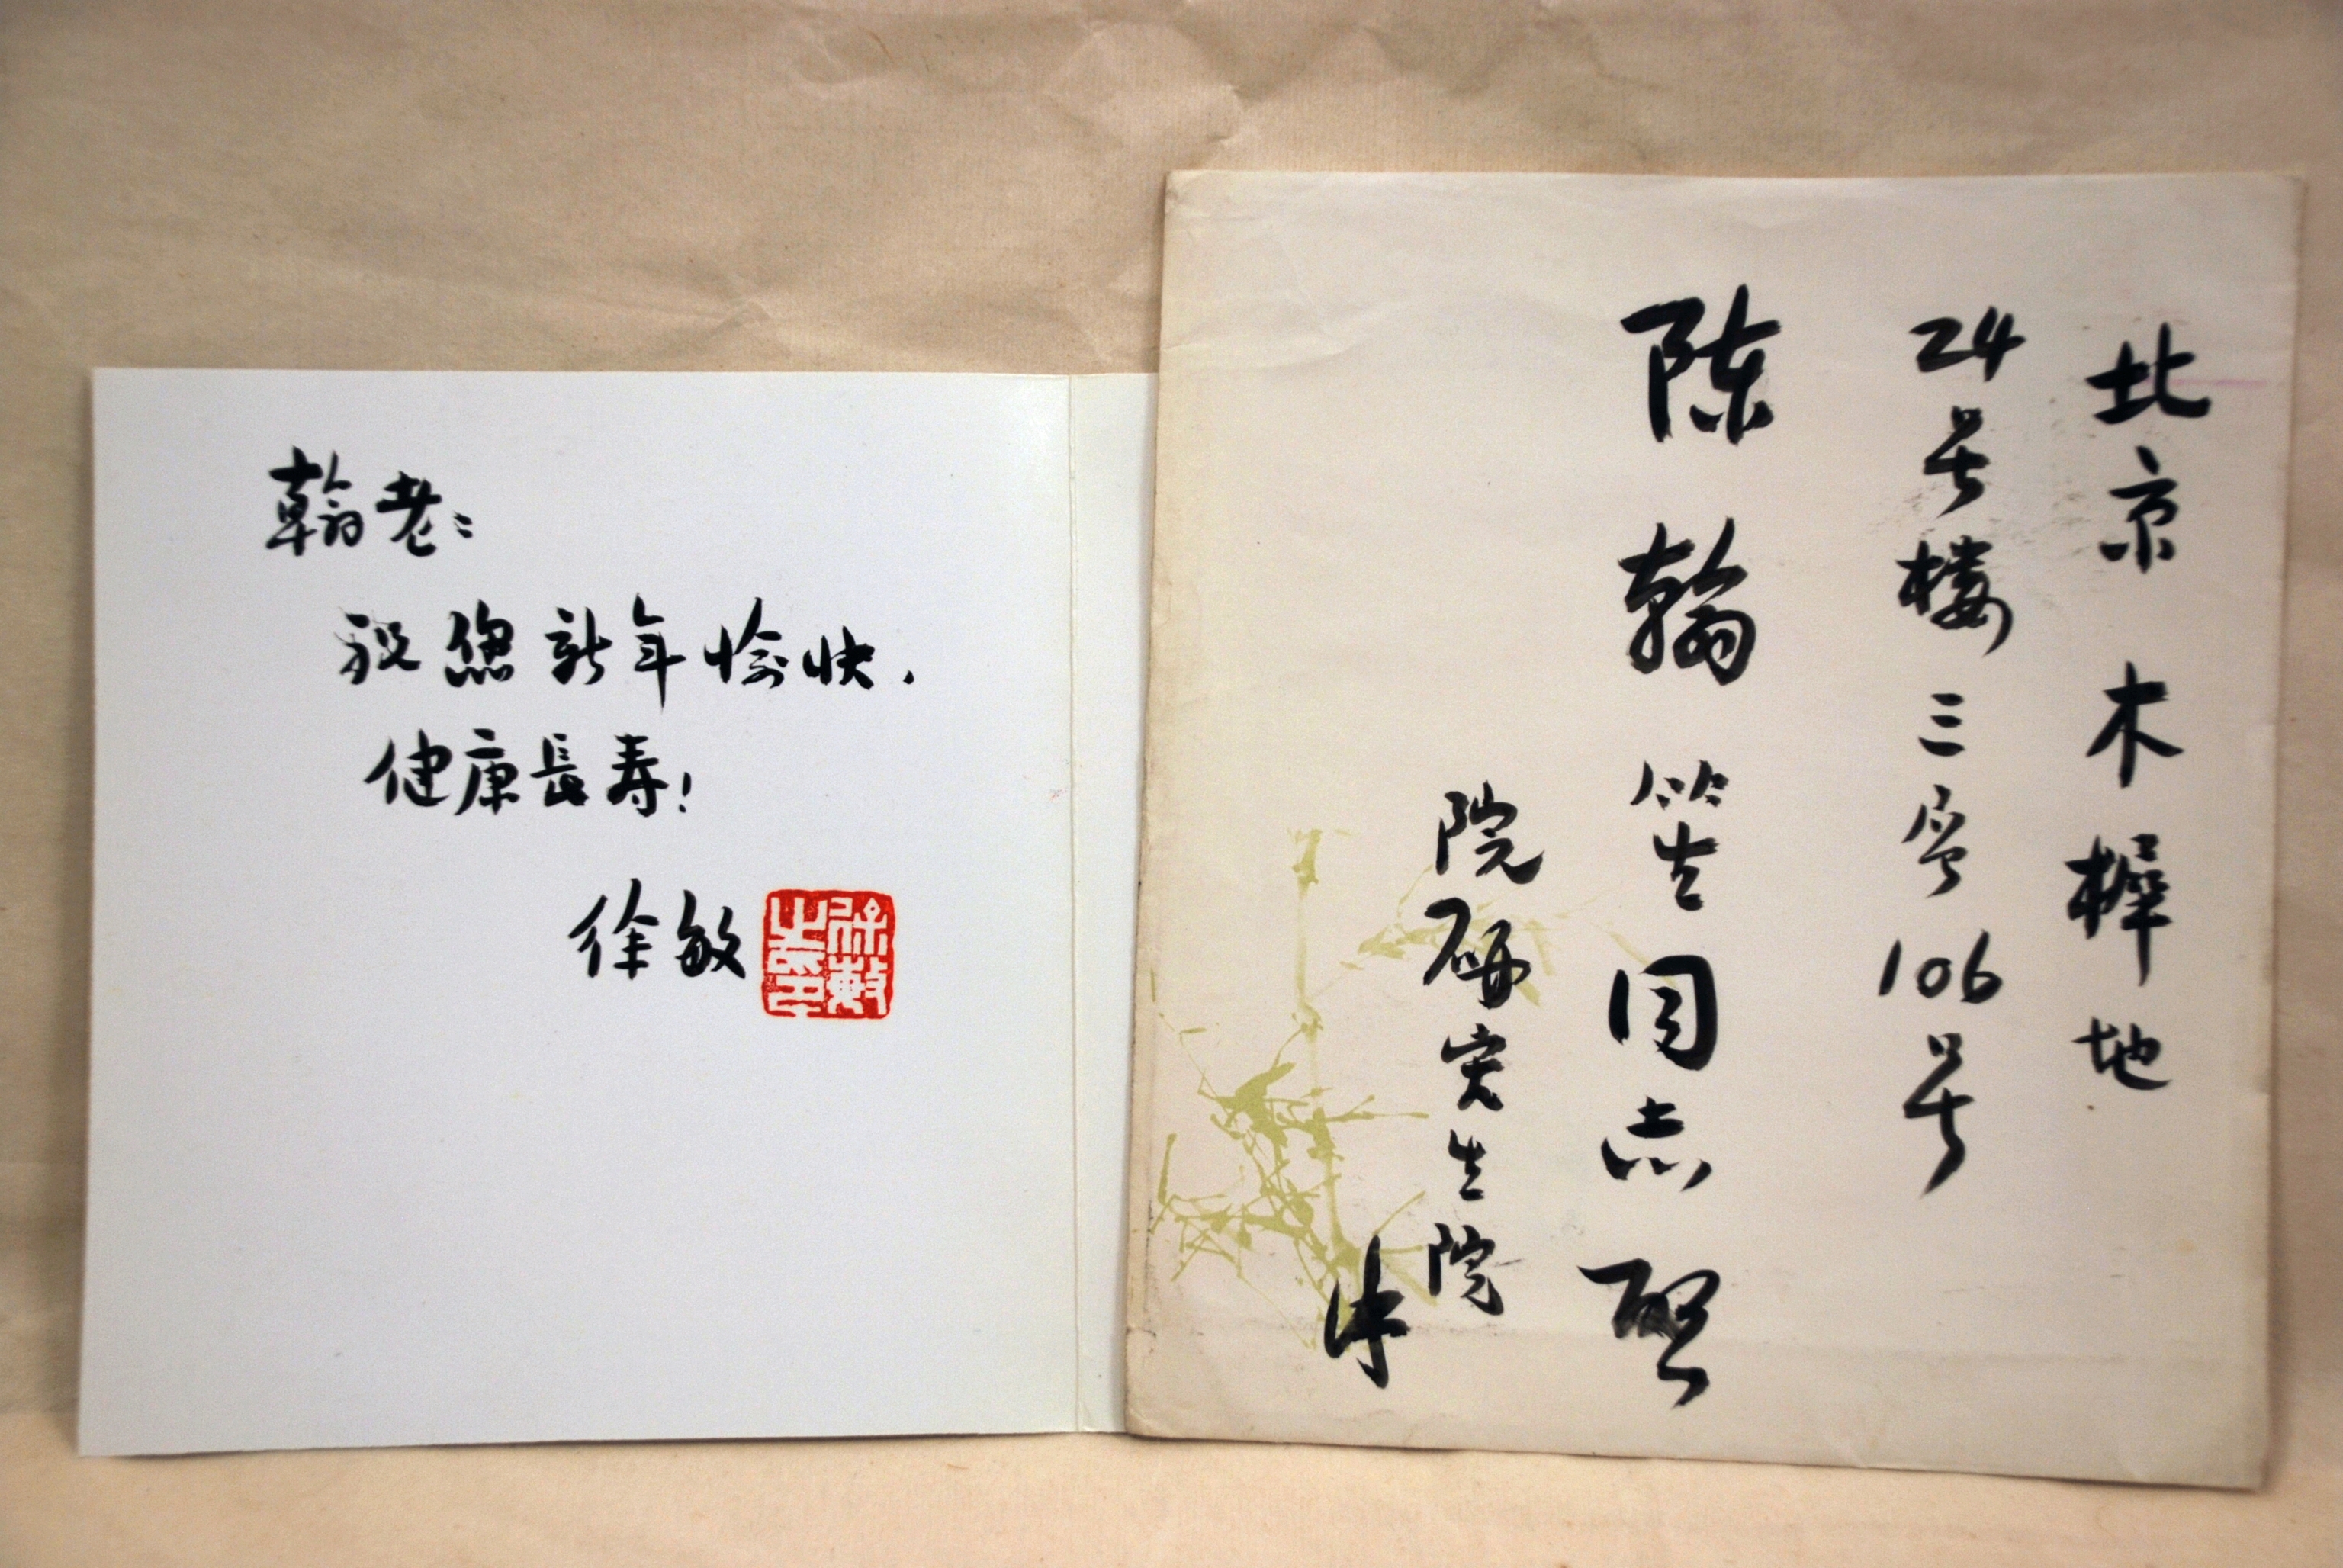 翰老:
祝您新年愉快.
健康長寿!
徐敏
徐敏之印
北京木樨地
24号楼三 106号
陈翰笙同志 启
院研究生院